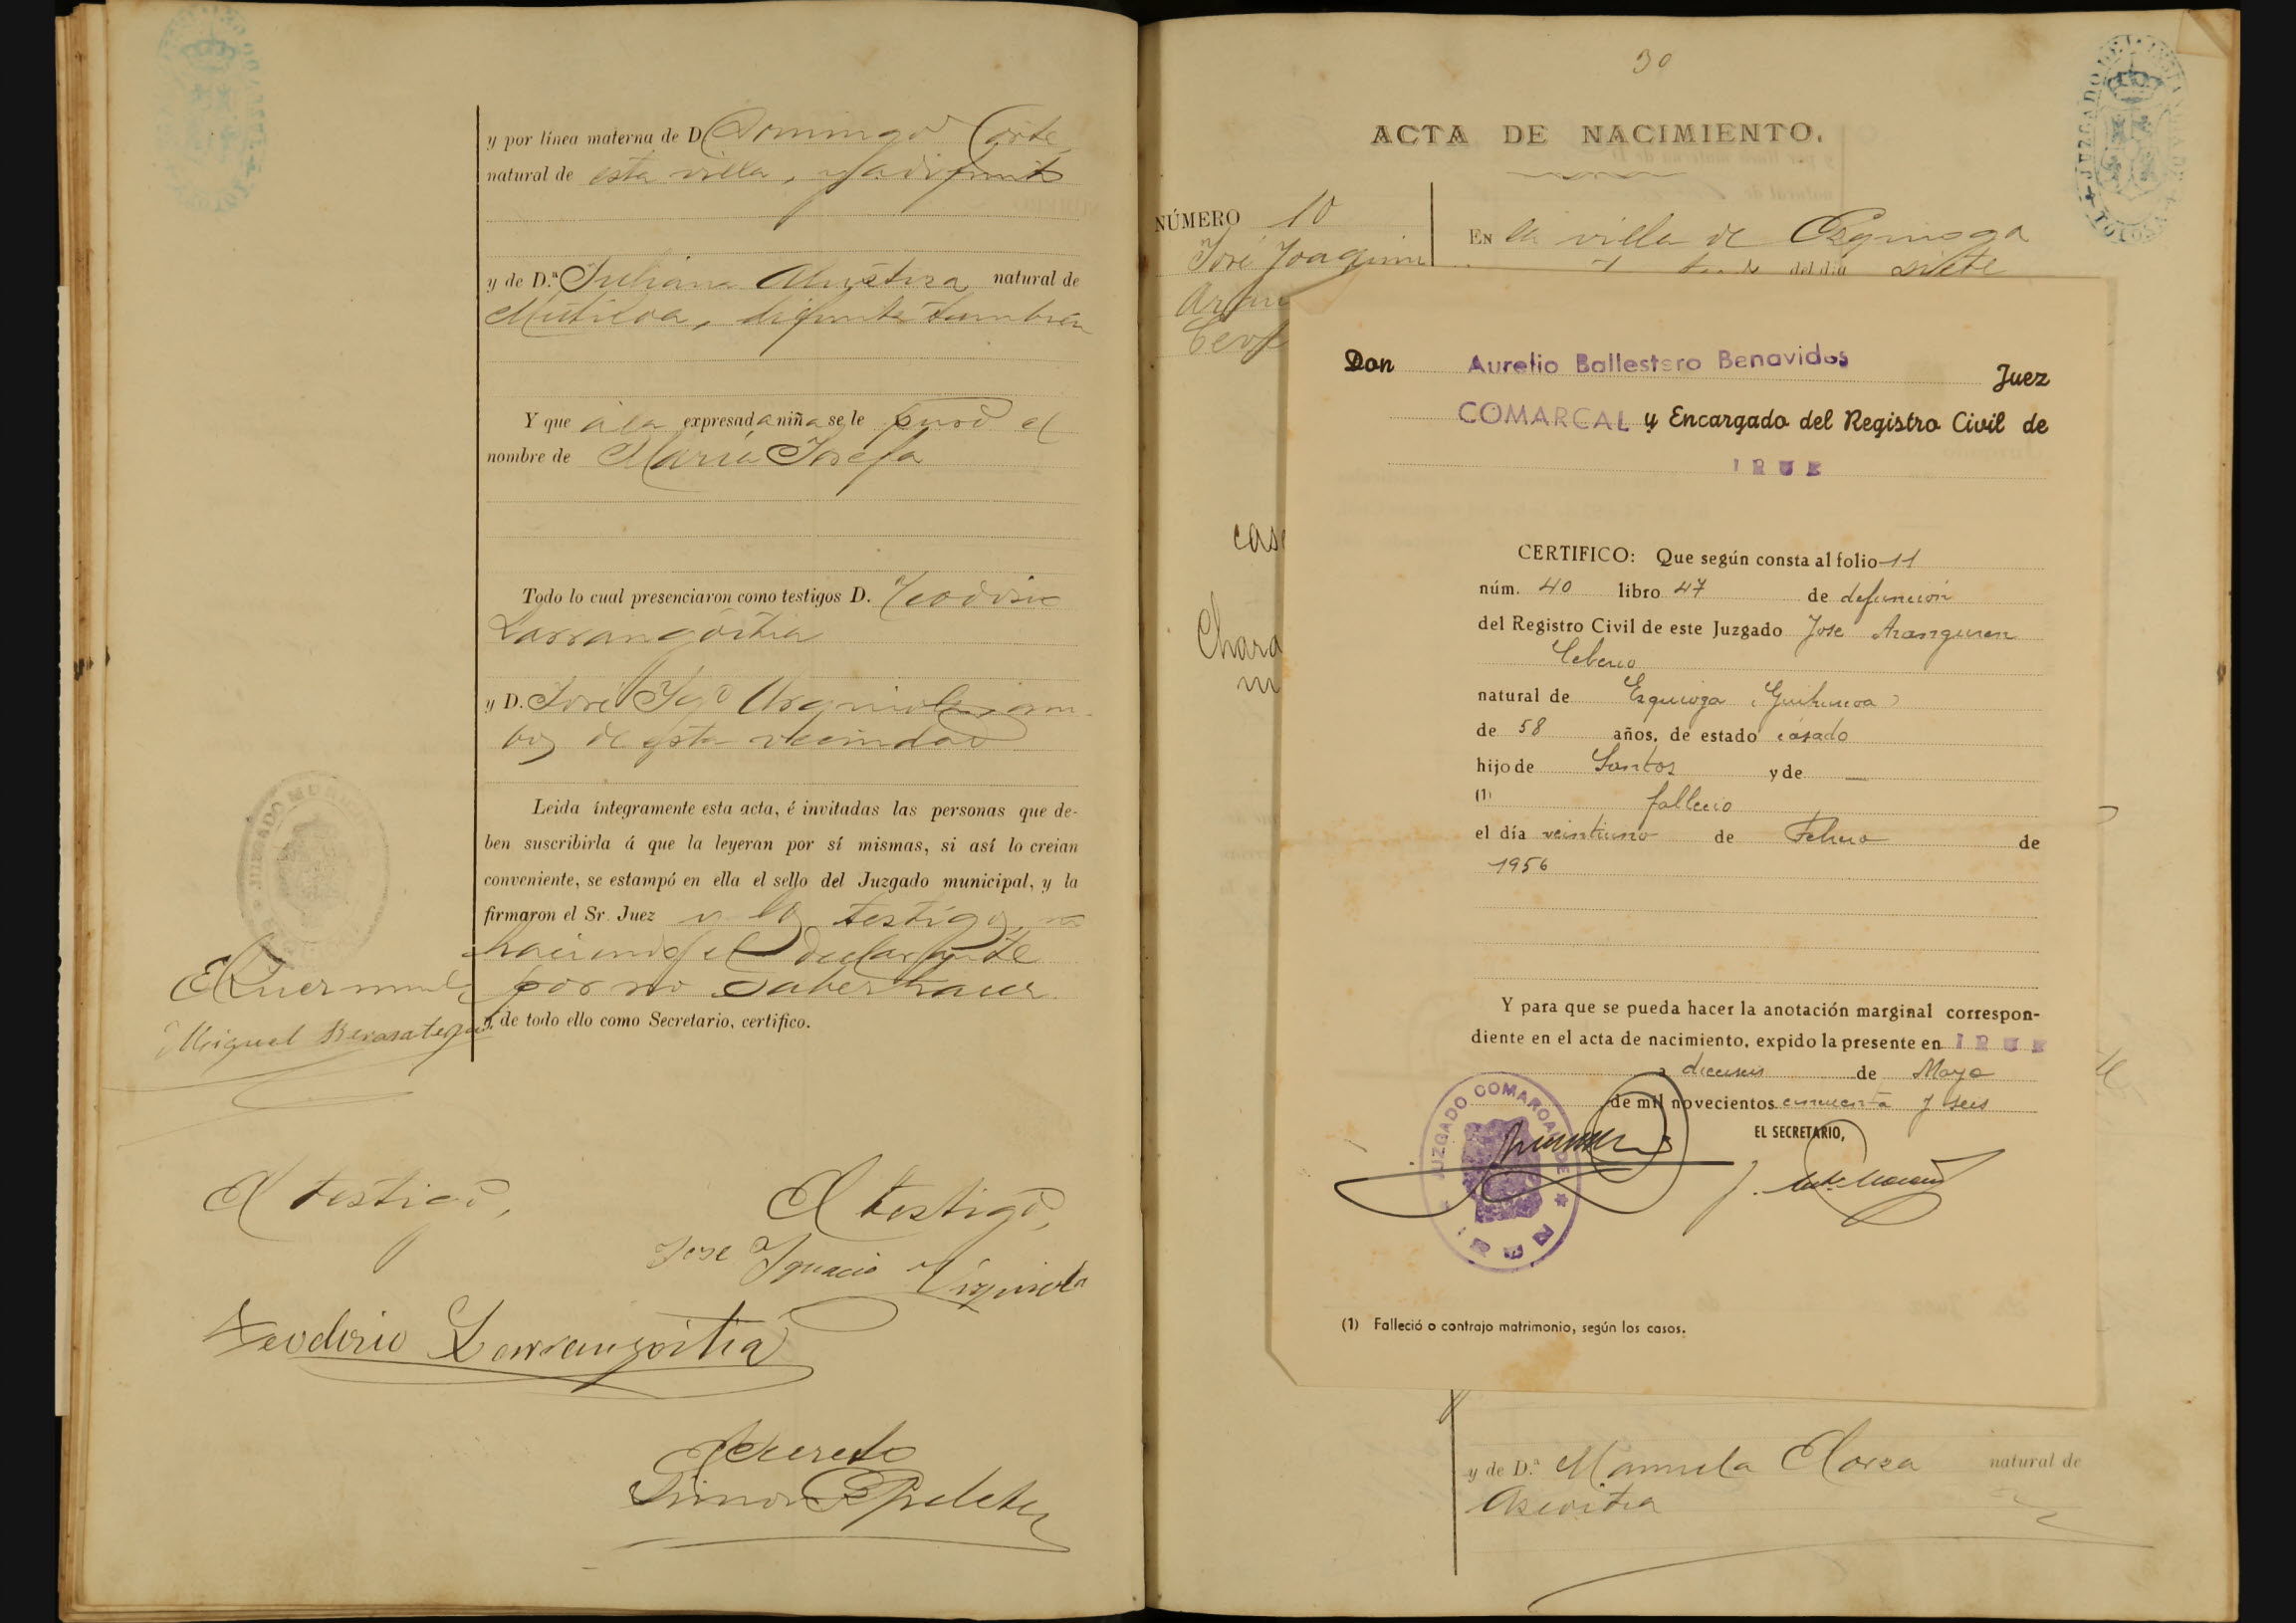 y por línea materna de D. Domingo Corte
natural de esta villa, ya difunto
y de D.ª Juliana Alustiza natural de
Mutiloa, difunta tambien
Y que á la expresada niña se le puso el
nombre de María Josefa
Todo lo cual presenciaron como testigos D. Teodosio
Larrangoitia
y D. José Ygº Urquiola, am-
bos de esta vecindad
Leida íntegramente esta acta, é invitadas las personas que de-
ben suscribirla á que la leyeran por sí mismas, si así lo creian
conveniente, se estampó en ella el sello del Juzgado municipal, y la
firmaron el Sr. Juez y los testigos, no
haciendo el declarante
por no saber hacer
y de todo ello como Secretario, certifico.
El Juez munl
Miguel Berasategui
JUZGADO MUNICIPAL
El testigo,
El testigo,
Jose Ygnacio Urquiola
Teodosio Larrangoitia
Simon
30
ACTA DE NACIMIENTO.
NÚMERO 10
José Joaquin
Aran
EN la villa de Ezquioga
del dia siete
cas
Chara
m
Don Aurelio Ballestero Benavides Juez
COMARCAL y Encargado del Registro Civil de
IRUN
CERTIFICO: Que según consta al folio 11
núm. 40 libro 47 de defunción
del Registro Civil de este Juzgado Jose Aranguren
Ceberio
natural de Ezquioga (Guipuzcoa)
de 58 años, de estado casado
hijo de Santos y de —
(1) fallecio
el día veintiuno de Febrero de
1956
Y para que se pueda hacer la anotación marginal correspon-
diente en el acta de nacimiento, expido la presente en IRUN
a dieciseis de Mayo
de mil novecientos cincuenta y seis
EL SECRETARIO,
JUZGADO COMARCAL DE IRUN
(1) Falleció o contrajo matrimonio, según los casos.
y de D.ª Manuela Elorza natural de
Azcoitia